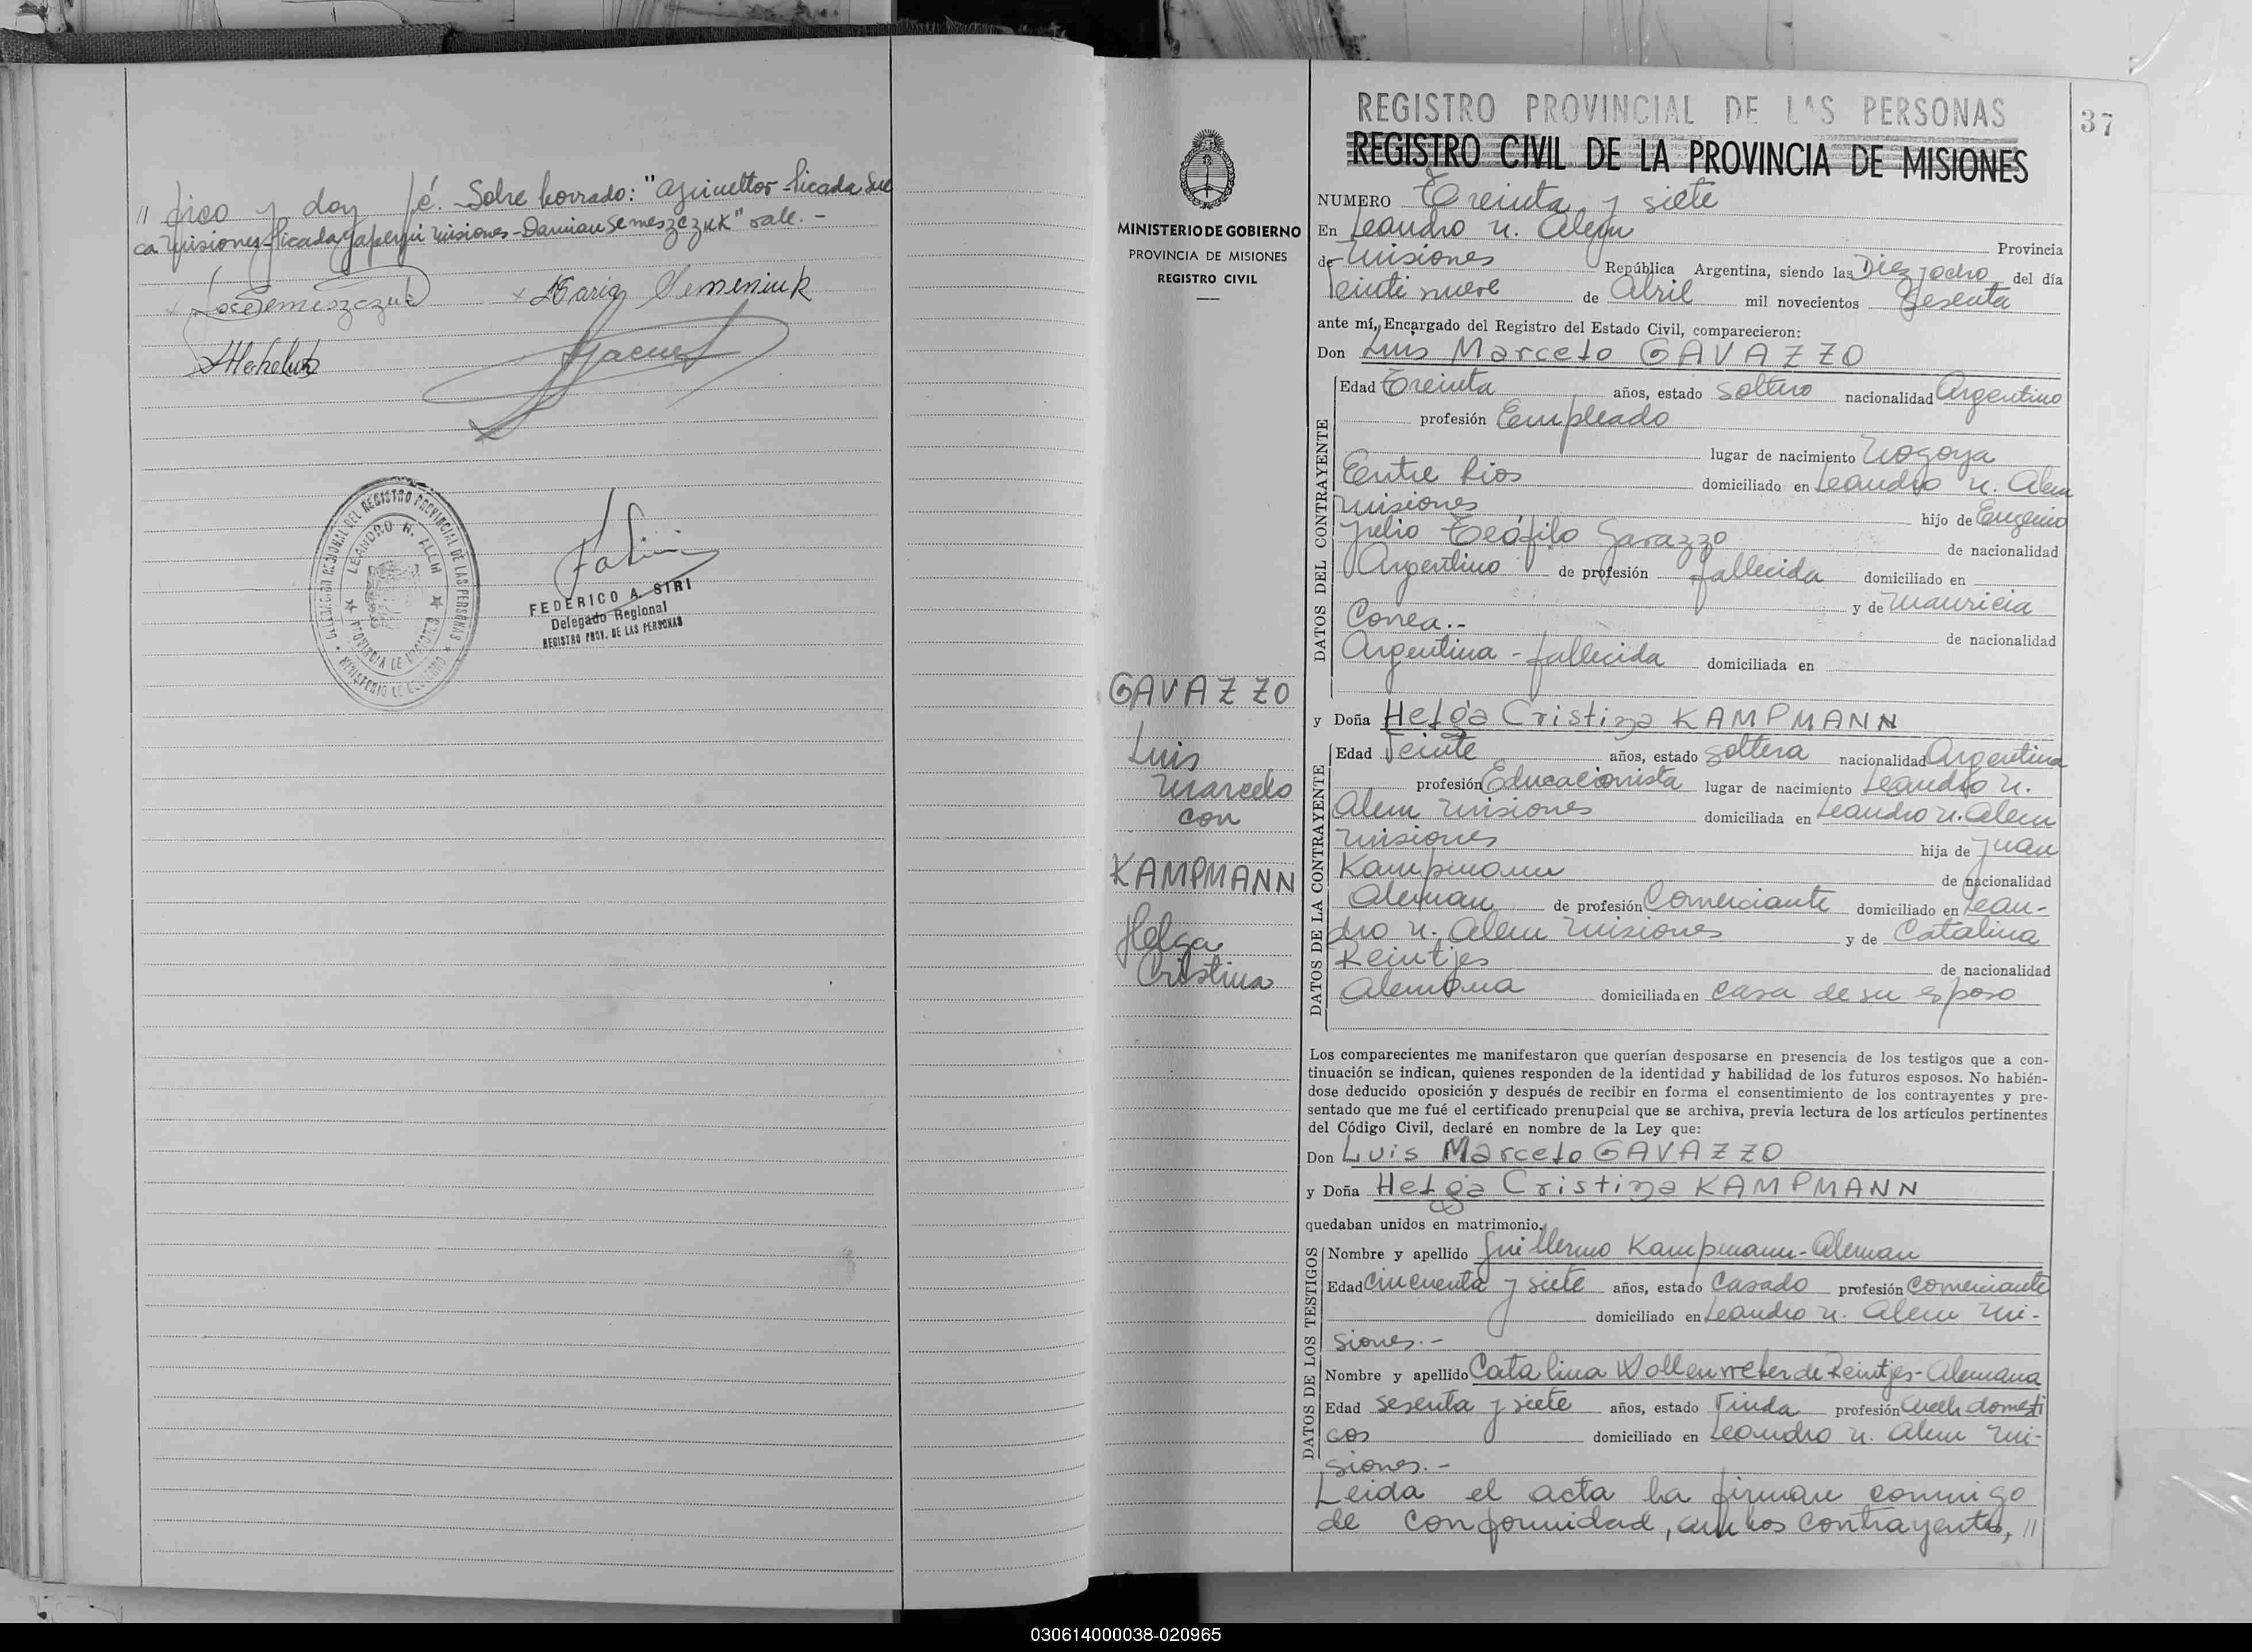 // fico y doy fé. Sobre borrado: "agricultor - picada Sue
ca Misiones - picada Yapeyú Misiones - Damian Semeszczuk" vale. -
x José Semeszczuk x Maria Semeniuk
FEDERICO A. SIRI
Delegado Regional
REGISTRO PROV. DE LAS PERSONAS
DELEGACION REGIONAL DEL REGISTRO PROVINCIAL DE LAS PERSONAS
LEANDRO N. ALEM
PROVINCIA DE MISIONES
MINISTERIO DE GOBIERNO
MINISTERIO DE GOBIERNO
PROVINCIA DE MISIONES
REGISTRO CIVIL
GAVAZZO
Luis
Marcelo
con
KAMPMANN
Helga
Cristina
37
REGISTRO PROVINCIAL DE LAS PERSONAS
REGISTRO CIVIL DE LA PROVINCIA DE MISIONES
NUMERO Treinta y siete
En Leandro N. Alem Provincia
de Misiones República Argentina, siendo las Diez y ocho del día
Veinti nueve de Abril mil novecientos Sesenta
ante mí, Encargado del Registro del Estado Civil, comparecieron:
Don Luis Marcelo GAVAZZO
DATOS DEL CONTRAYENTE
Edad Treinta años, estado soltero nacionalidad Argentino
profesión Empleado
lugar de nacimiento Nogoya
Entre Rios domiciliado en Leandro N. Alem
Misiones hijo de Eugenio
Julio Teófilo Gavazzo de nacionalidad
Argentino de profesión fallecida domiciliado en
y de Mauricia
Correa.- de nacionalidad
Argentina - fallecida domiciliada en
y Doña Helga Cristina KAMPMANN
DATOS DE LA CONTRAYENTE
Edad Veinte años, estado soltera nacionalidad Argentina
profesión Educacionista lugar de nacimiento Leandro N.
Alem Misiones domiciliada en Leandro N. Alem
Misiones hija de Juan
Kampmann de nacionalidad
Aleman de profesión Comerciante domiciliado en Lean-
dro N. Alem Misiones y de Catalina
Reintjes de nacionalidad
Alemana domiciliada en casa de su esposo
Los comparecientes me manifestaron que querían desposarse en presencia de los testigos que a con-
tinuación se indican, quienes responden de la identidad y habilidad de los futuros esposos. No habién-
dose deducido oposición y después de recibir en forma el consentimiento de los contrayentes y pre-
sentado que me fué el certificado prenupcial que se archiva, previa lectura de los artículos pertinentes
del Código Civil, declaré en nombre de la Ley que:
Don Luis Marcelo GAVAZZO
y Doña Helga Cristina KAMPMANN
quedaban unidos en matrimonio.
DATOS DE LOS TESTIGOS
Nombre y apellido Guillermo Kampmann - Aleman
Edad cincuenta y siete años, estado Casado profesión comerciante
domiciliado en Leandro N. Alem Mi-
siones.-
Nombre y apellido Catalina Wollenweber de Reintjes - Alemana
Edad sesenta y siete años, estado Viuda profesión queh. domesti
cos domiciliado en Leandro N. Alem Mi-
siones.-
Leida el acta la firman conmigo
de conformidad, ambos contrayentes, //
030614000038-020965